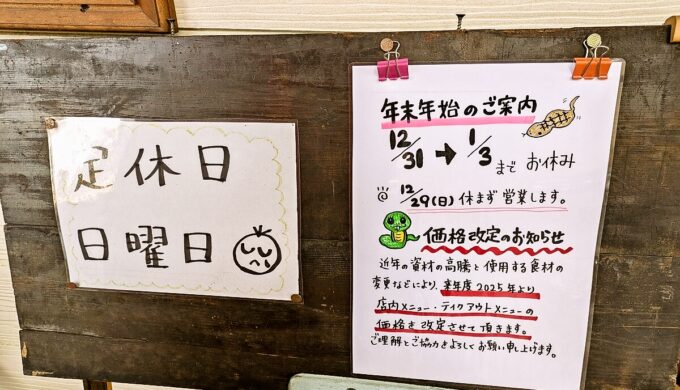 定休日
日曜日
年末年始のご案内
12/31 → 1/3 まで お休み
◎ 12/29(日) 休まず 営業します。
価格改定のお知らせ
近年の資材の高騰と使用する食材の
変更などにより、来年度2025年より
店内メニュー・テイクアウトメニューの
価格を改定させて頂きます。
ご理解とご協力をよろしくお願い申し上げます。